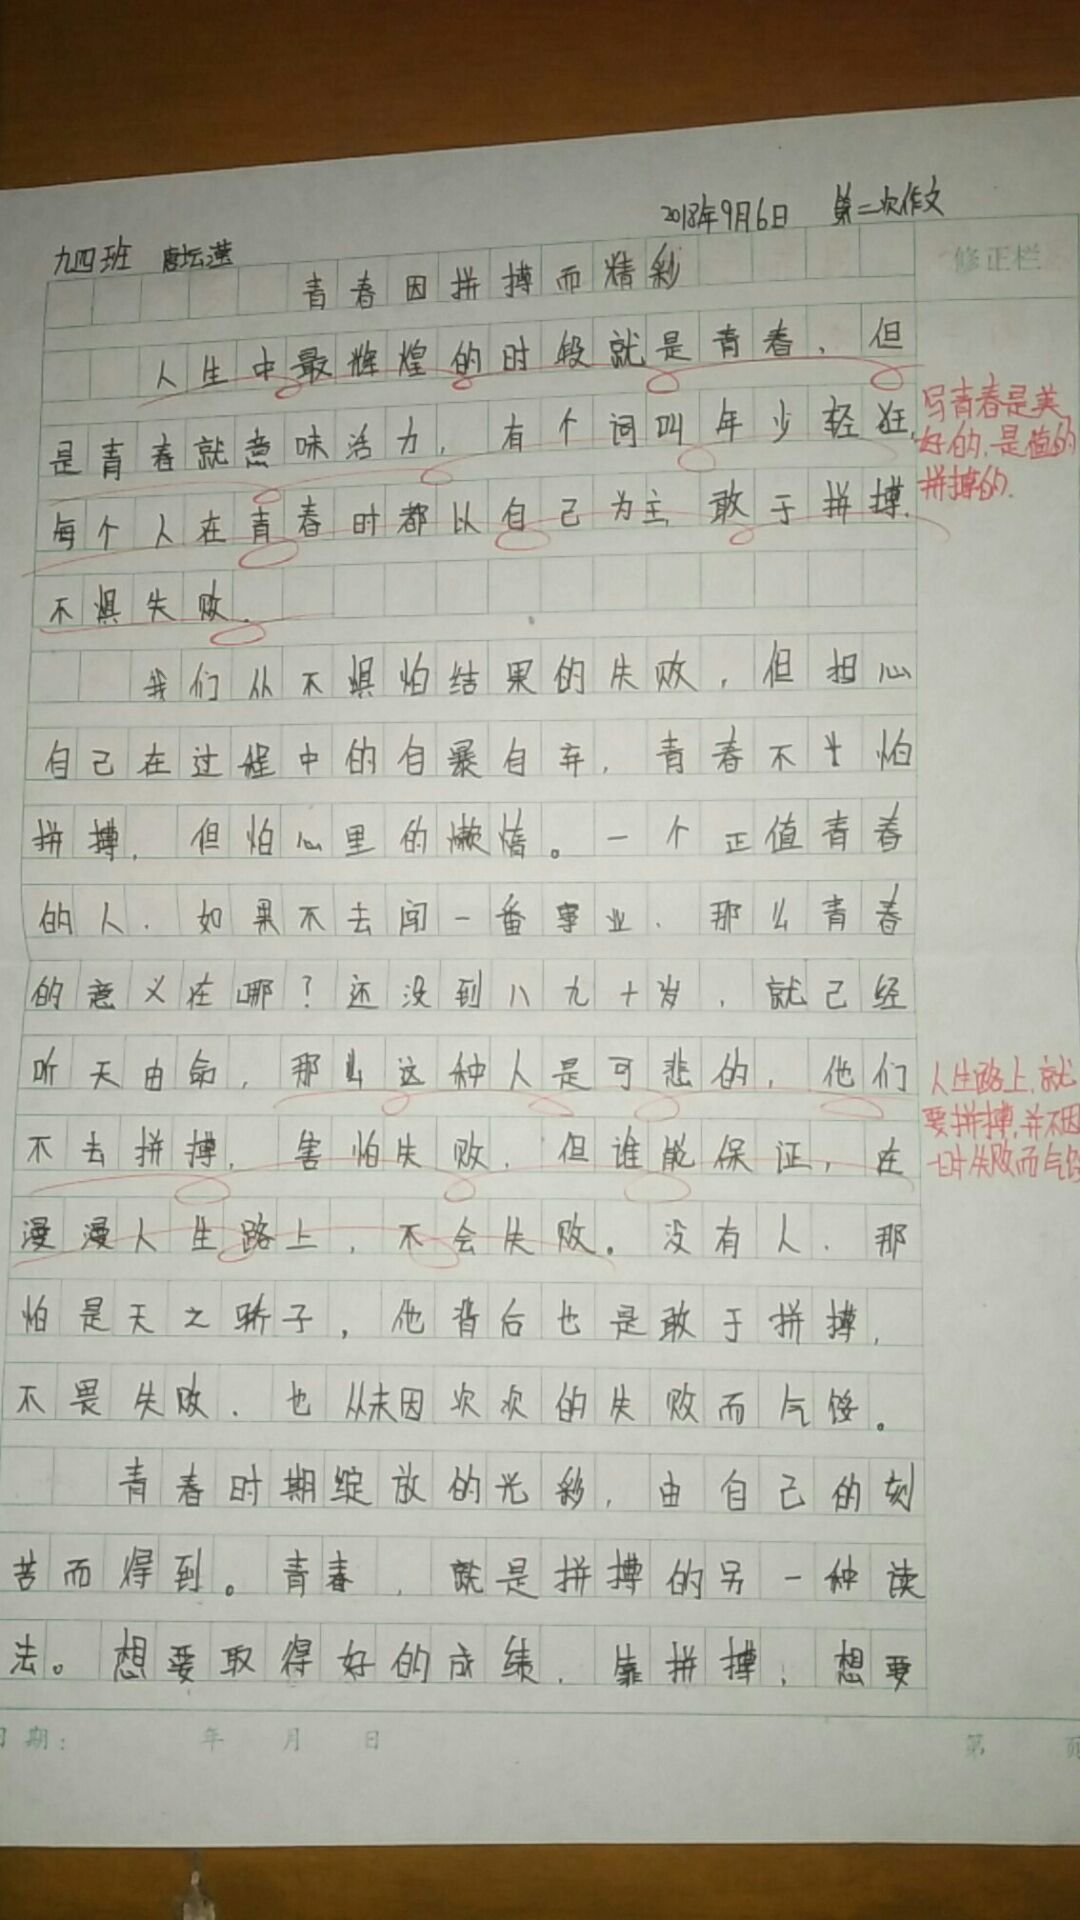 2018年9月6日 第二次作文
九四班
修正栏
青春因拼搏而精彩
人生中最辉煌的时段就是青春，但
是青春就意味活力，有个词叫年少轻狂，
每个人在青春时都以自己为主，敢于拼搏，
不惧失败。
写青春是美
好的，是值的
拼搏的。
我们从不惧怕结果的失败，但担心
自己在过程中的自暴自弃，青春不怕
拼搏，但怕心里的懒惰。一个正值青春
的人，如果不去闯一番事业，那么青春
的意义在哪？还没到八九十岁，就已经
听天由命，那么这种人是可悲的，他们
不去拼搏，害怕失败，但谁能保证，在
漫漫人生路上，不会失败。没有人，那
人生路上，就
要拼搏，并不因
一时失败而气馁
怕是天之骄子，他背后也是敢于拼搏，
不畏失败，也从未因次次的失败而气馁。
青春时期绽放的光彩，由自己的刻
苦而得到。青春，就是拼搏的另一种读
法。想要取得好的成绩，靠拼搏；想要
日期： 年 月 日
第 页